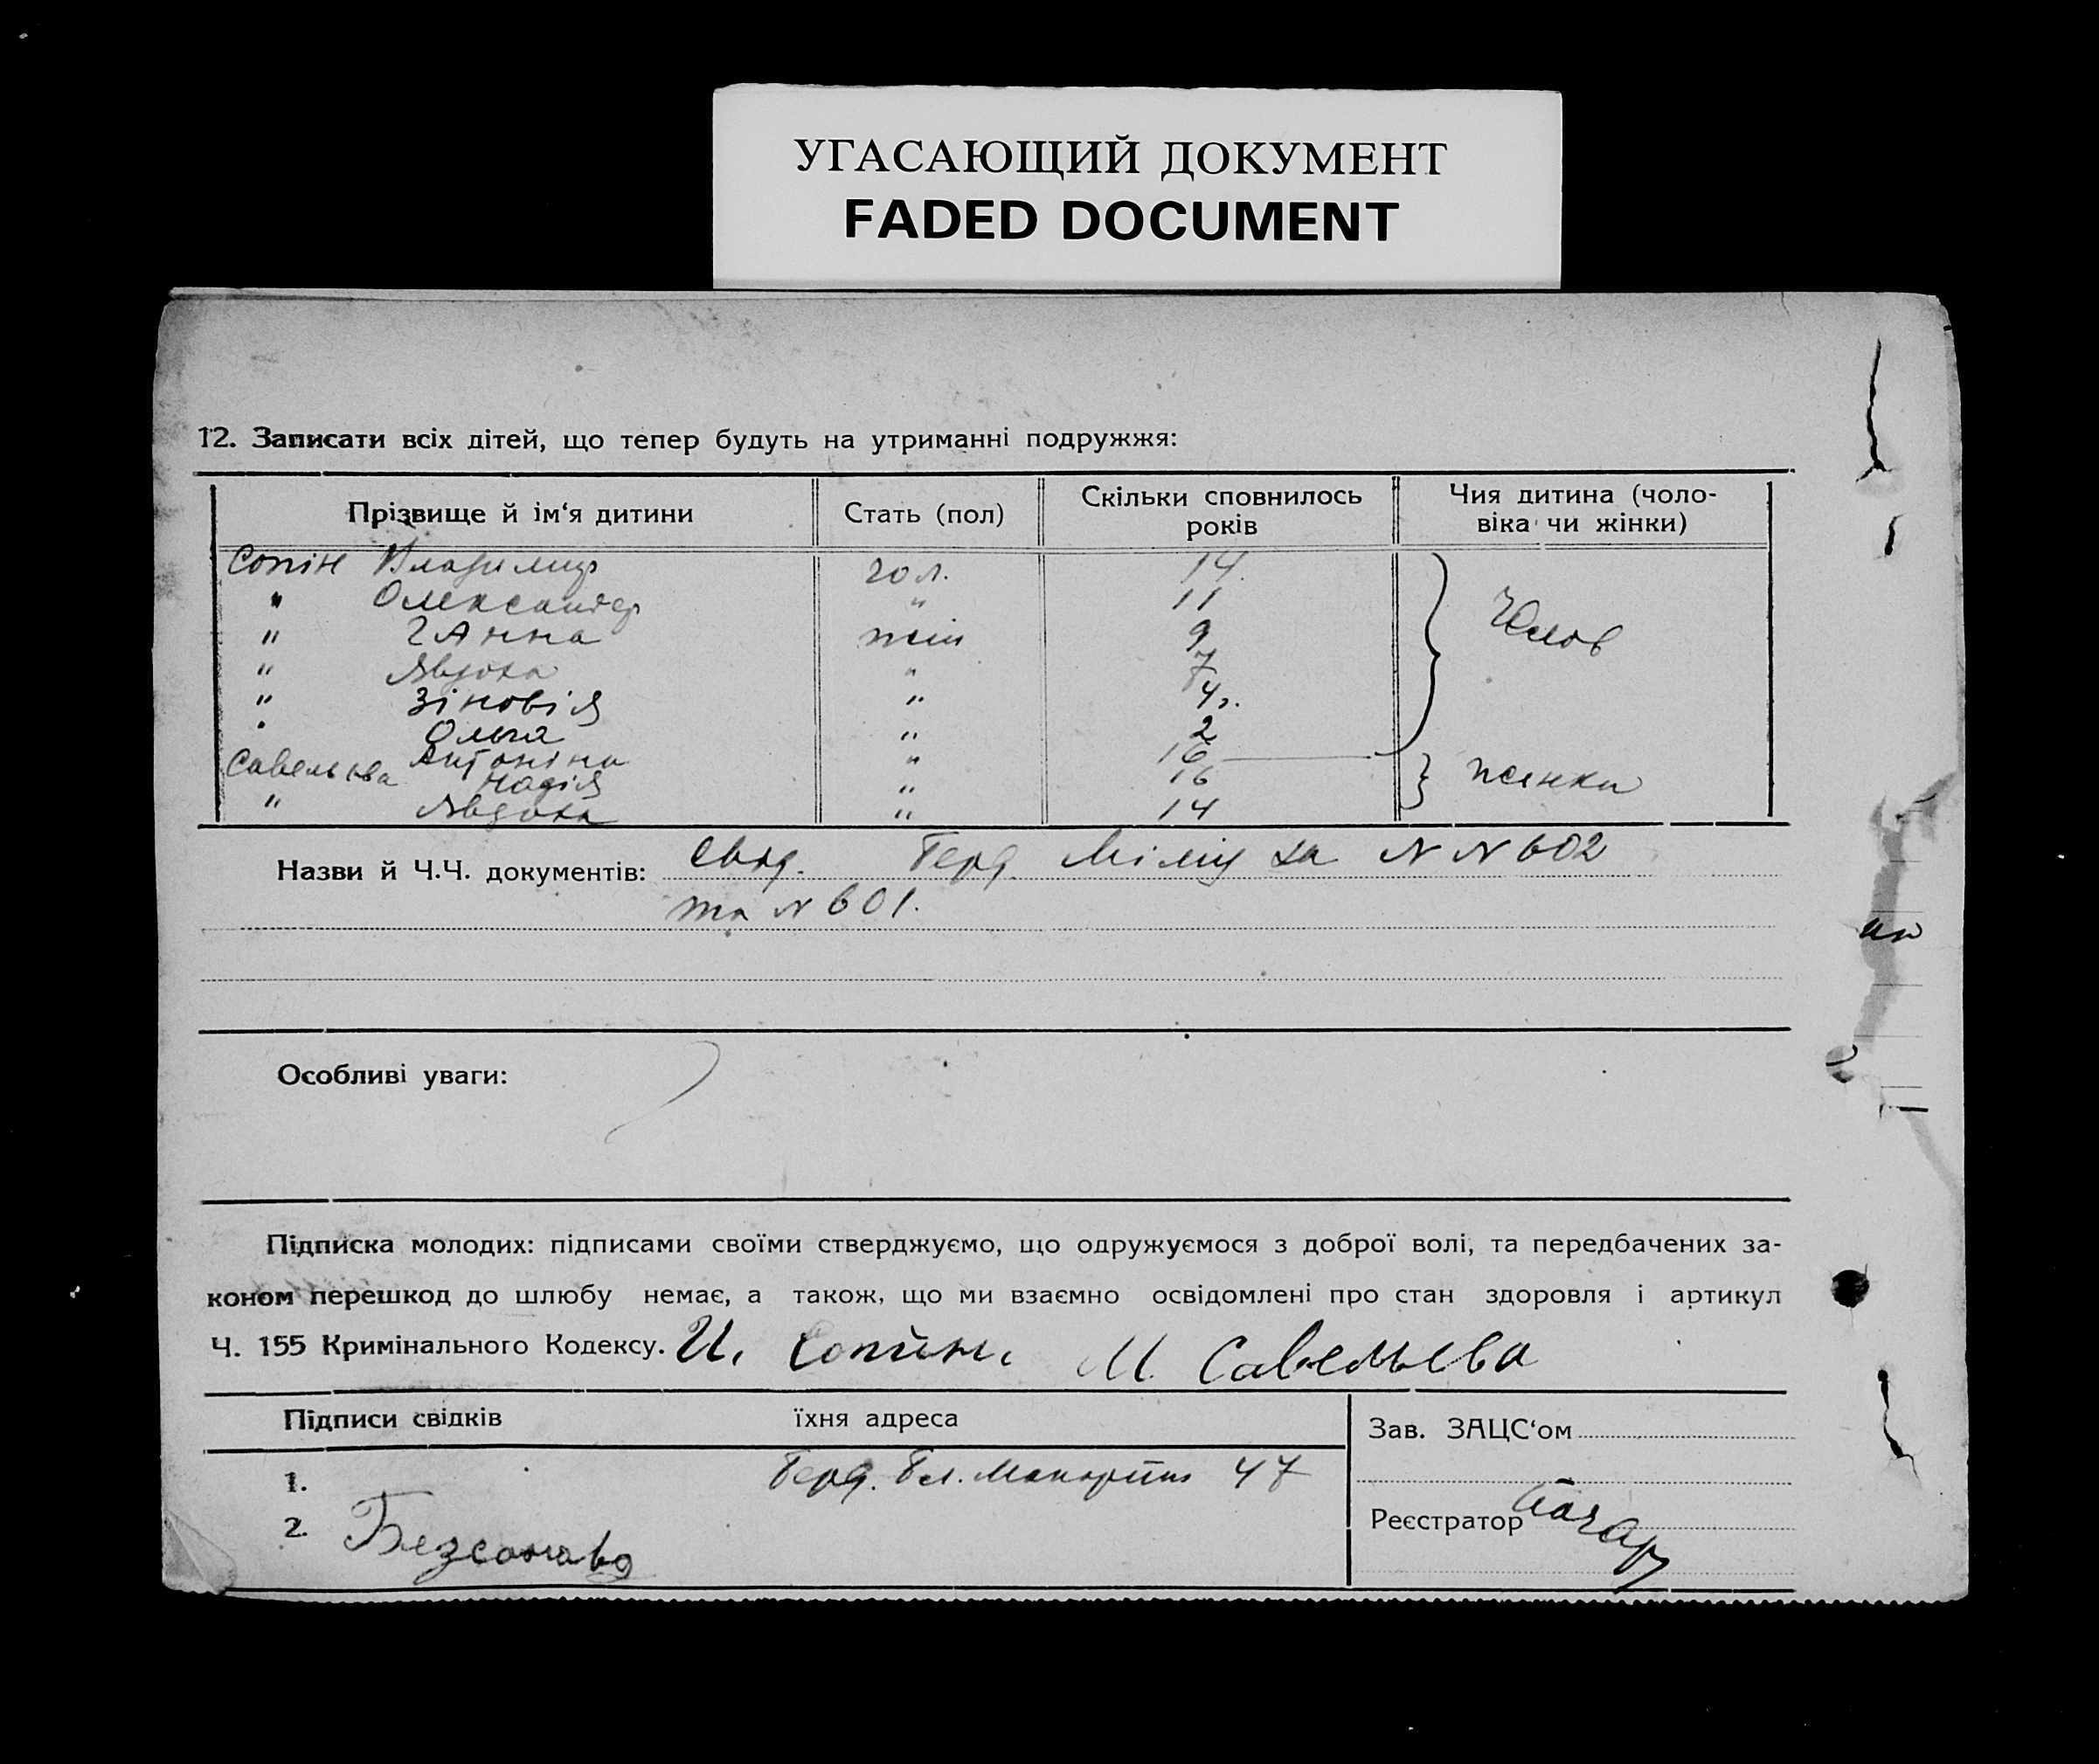 УГАСАЮЩИЙ ДОКУМЕНТ
FADED DOCUMENT
12. Записати всіх дітей, що тепер будуть на утриманні подружжя:
Прізвище й ім‘я дитини Стать (пол) Скільки сповнилось років Чия дитина (чоловіка чи жінки)
Сопін Владимир чол. 14
" Олександр " 11
" Ганна жін 9 Челов
" Явдоха " 7
" Зіновія " 4
" Ольга " 2
Антоніна " 16
Савельєва Надія " 16 жинки
" Явдоха " 14
Назви й Ч.Ч. документів: Свид. Берд. Міліц за N N 602
та N 601.
Особливі уваги:
Підписка молодих: підписами своїми стверджуємо, що одружуємося з доброї волі, та передбачених за-
коном перешкод до шлюбу немає, а також, що ми взаємно освідомлені про стан здоровля і артикул
Ч. 155 Кримінального Кодексу. И. Сопин. М. Савельева
Підписи свідків їхня адреса Зав. ЗАЦС‘ом
1. Берд. 47
2. Реєстратор